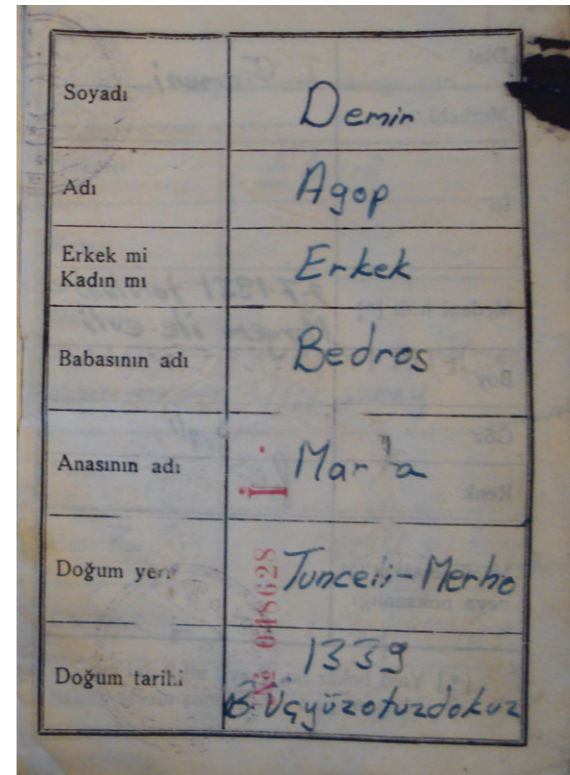 Soyadı Demir
Adı Agop
Erkek mi
Kadın mı Erkek
Babasının adı Bedros
Anasının adı
Doğum yeri Tunceli-Merho
Doğum tarihi 1339
Üçyüzotuzdokuz
İ.
№ 048628